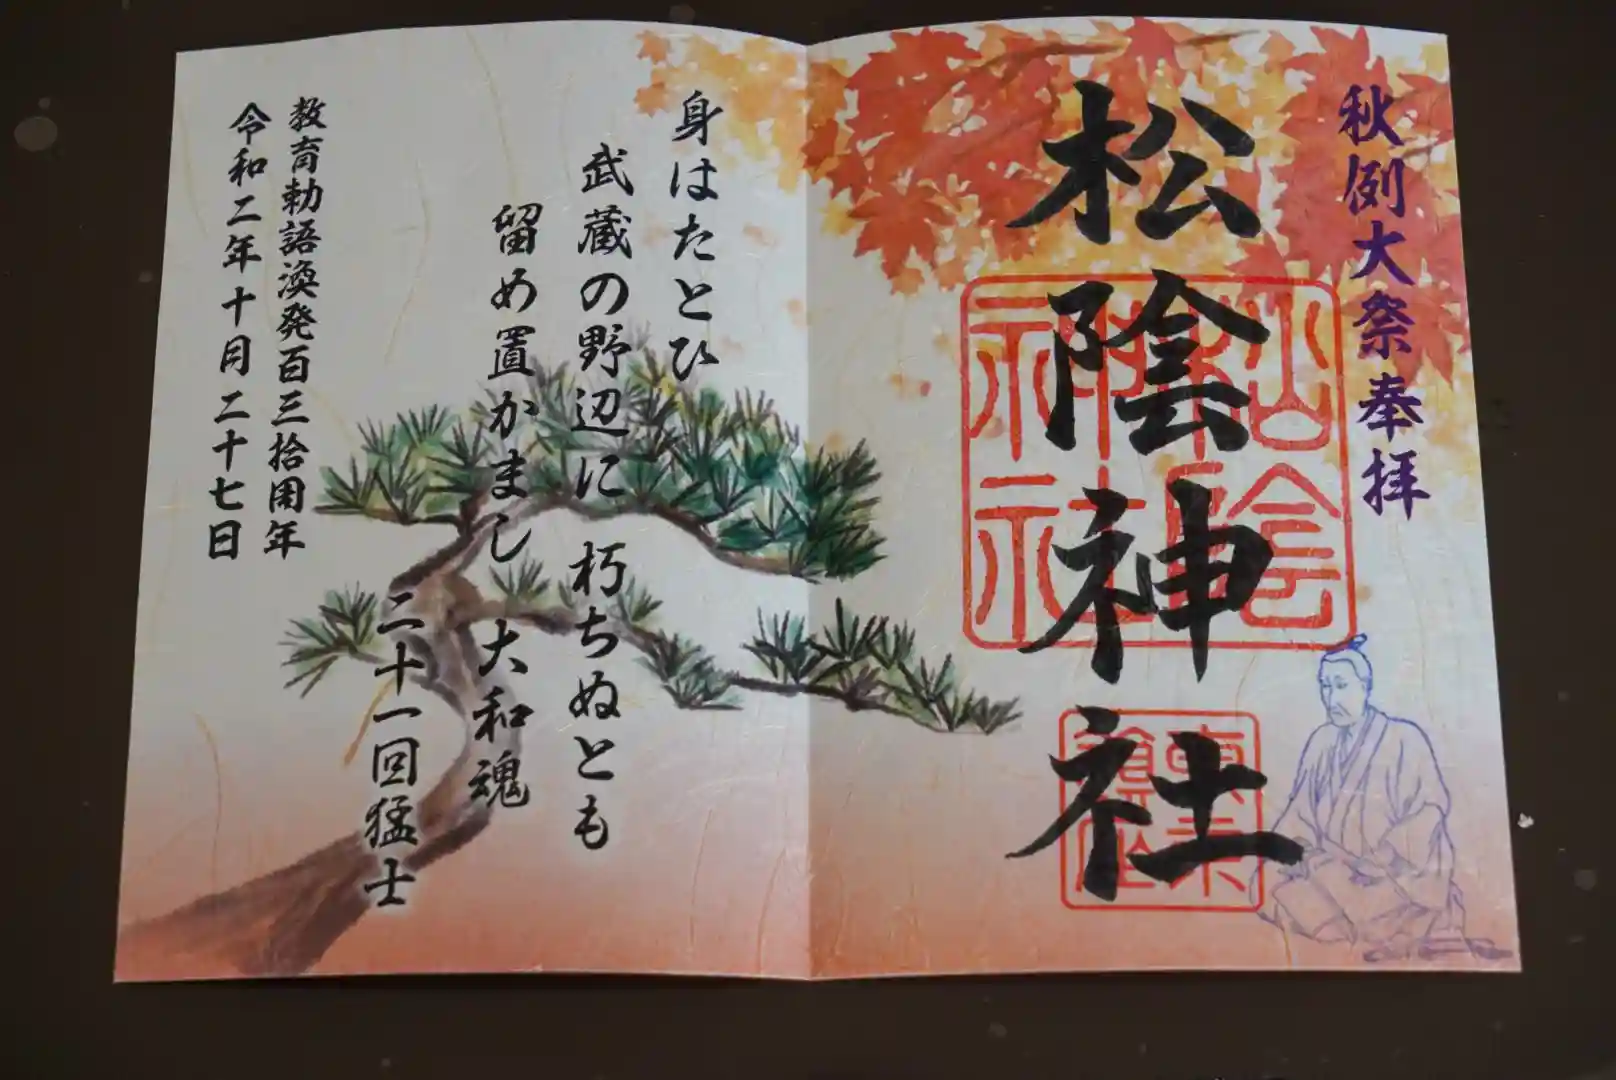 秋例大祭奉拝
松陰神社
松陰神社
身はたとひ
武蔵の野辺に 朽ちぬとも
留め置かまし 大和魂
二十一回猛士
教育勅語渙発百三拾周年
令和二年十月二十七日